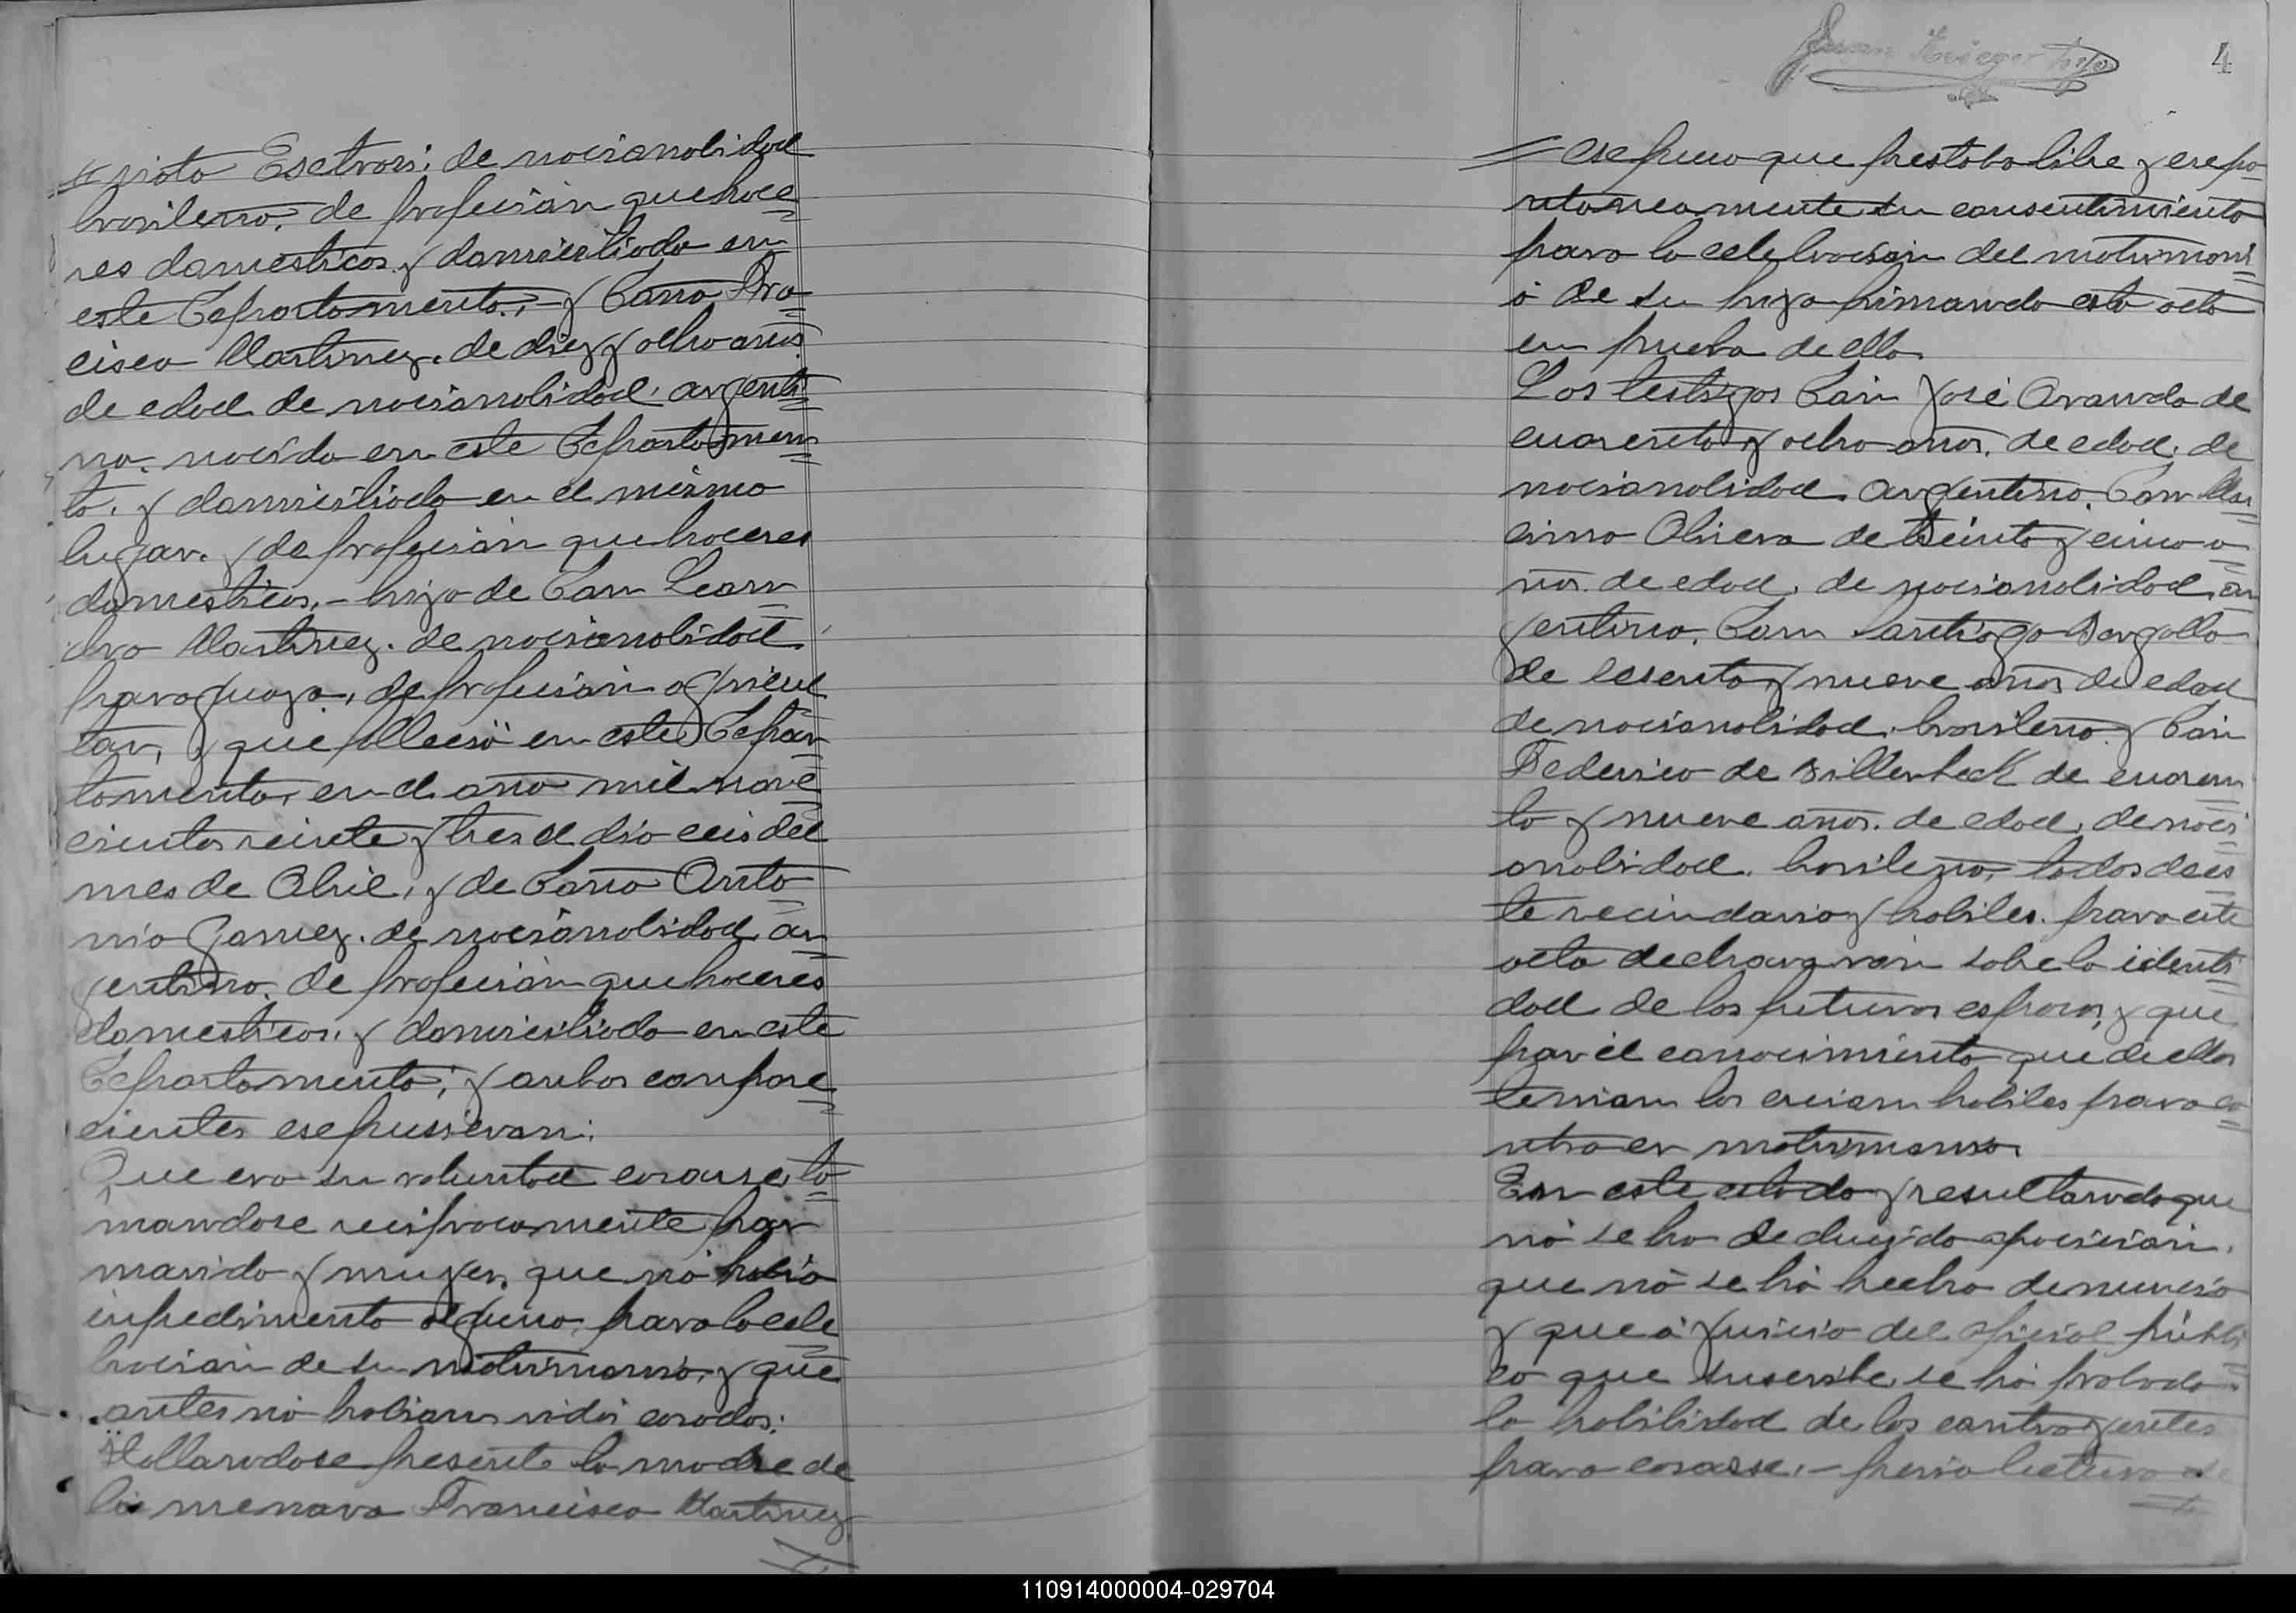 viota Escetrosi; de nocionalidad
brasilerra, de profecian quehace
res damesticos y damiciliada en
este Departamento; y Dona Fra
cisca Martinez. de diez y ocho anos
de edad de nocionalidad argenti
na. nocida en este Departamen
to. y damiciliada en el mismo
lugar. y de profecian quehaceres
damesticos. - hija de Dan Lean
dro Martinez. de nocianalidad
paraguaya, de profecian agricul
tar, y que fallecio en este Depar
tamento, en el ano mil nove
cientos veinte y tres el dia ceis del
mes de Abril, y de Dana Anto
nia Gamez. de nocianalidad ar
gentina. de profecian quehaceres
damesticos. y damiciliada en este
Departamento; y anbos canpare
cientes escpressivan:
Que era su valuntad cosarse, to
mandose reciprocamente par
marido y muger, que nó habia
inpedimento alguno, para la cele
bracian de su matrimanio, y que
antes nó habian sidós casados:
Hallandose presente la madre de
la menara Francisca Martinez
Juan Krieger hijo
4
escpuso que prestaba libre y escpo
ntaneamente su cansentimiento
para la celebracian del matrimoni
ó de su hija firmando esta acta
en prueba de ella.
Los testigos Dan José Aranda de
cuarenta y ocho anos. de edad. de
nocianalidad. argentina. Dan Mar
cirro Olivera de treinta y cinco a
nos. de edad. de nocianalidad. ar
gentina. Dan Santiago Bargallo
de sesenta y nueve anos de edad
de nocianalidad. brasilerra y Dan
Federico de Billerbeck de cuaren
ta y nueve anos. de edad. de noci
analidad. brasilerra, todos de es
te vecindario y habiles. para este
acto declraravan sobre la identi
dad de los futuros esposos, y que
par él canocimiento que de ellos
tenian los creian habiles para co
ntraer matrimanio.
En este estado y resultando que
nó se ha deducido oposician.
que nó se há hecho denuncia
y que á juicio del oficial públi
co que suscribe, se há probado
la habilidad de los cantrayentes
para casarse. - previa lectura de
110914000004-029704